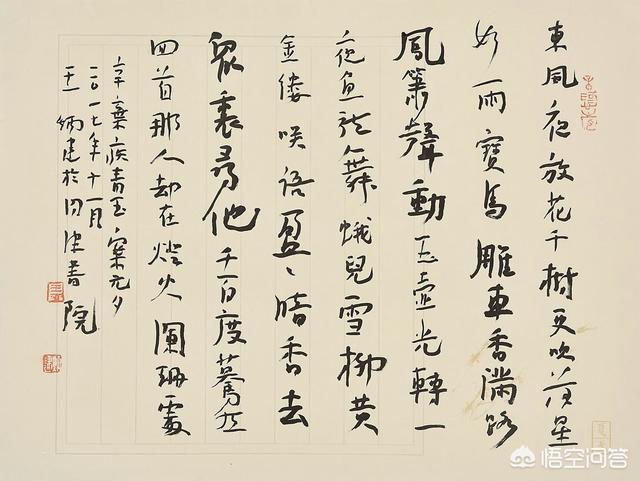 東風夜放花千樹更吹落星
如雨寶馬雕車香滿路
鳳簫聲動玉壺光轉一
夜魚龍舞蛾兒雪柳黃
金縷咲語盈〻暗香去
眾裏尋他千百度驀然
回首那人却在燈火闌珊處
辛棄疾青玉案元夕
二〇一七年十一月
炳建於書院
悟空问答